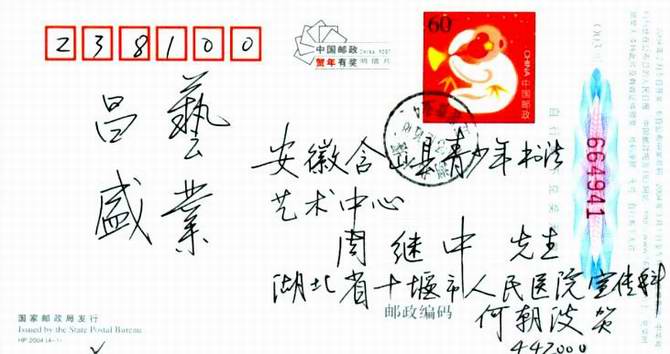 238100
中国邮政 China Post
贺年有奖 明信片
60
CHINA 中国邮政
藝昌
業盛
安徽含山县青少年书法
艺术中心
周继中 先生
湖北省十堰市人民医院宣传科
何朝波 贺
442000
邮政编码
664941
国家邮政局发行
Issued by the State Postal Bureau
HP 2004 (4-1)